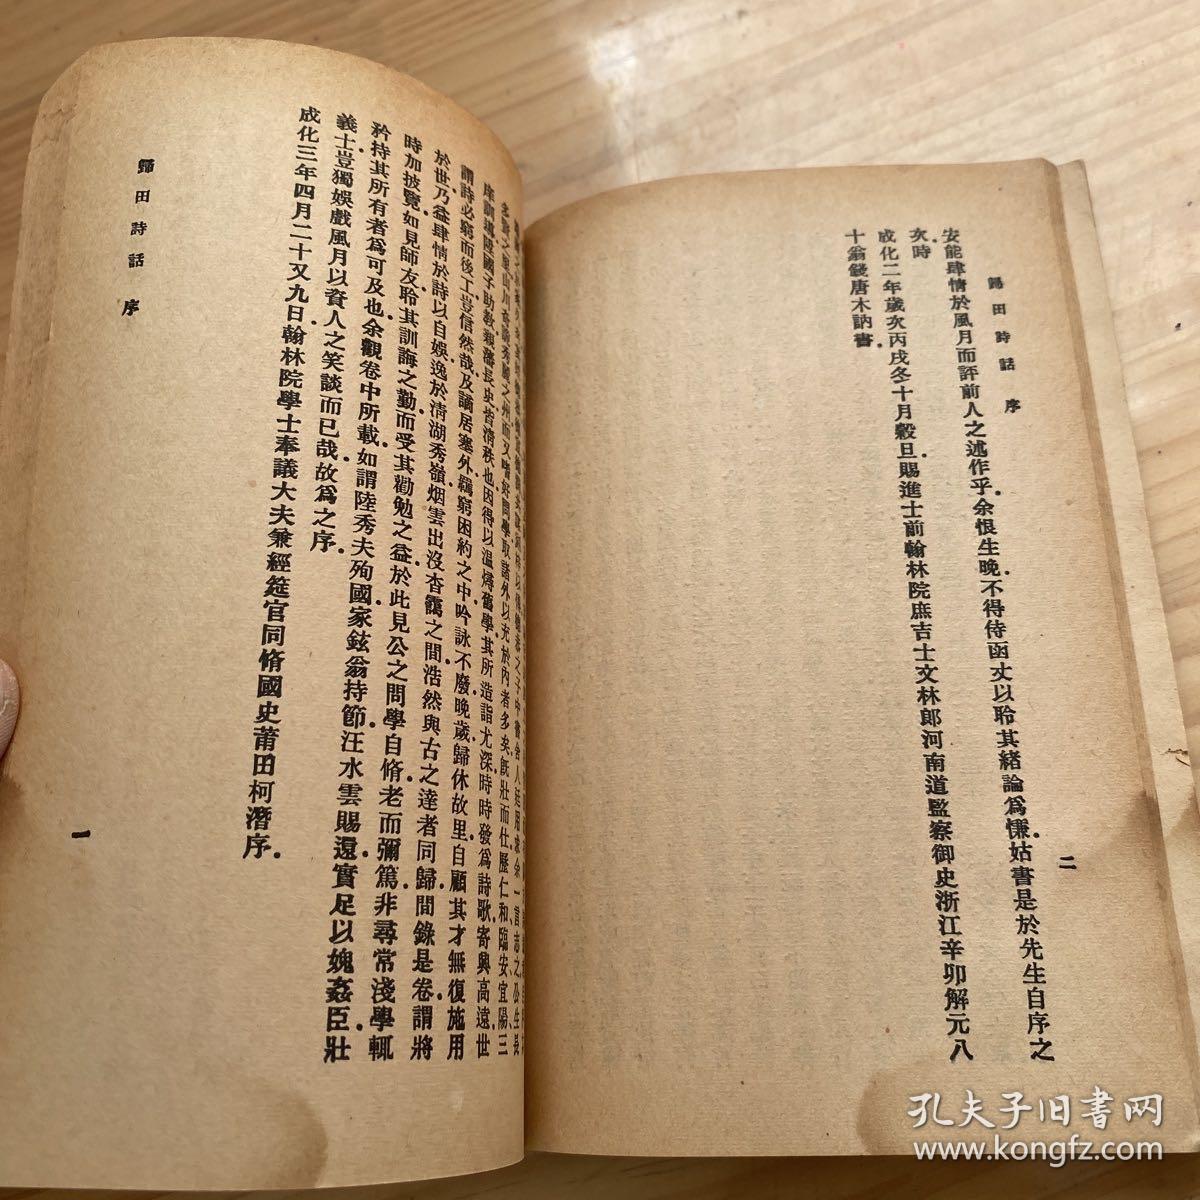 歸田詩話 序
二
安能肆情於風月而評前人之述作乎余恨生晚不得侍函丈以聆其緒論為慊姑書是於先生自序之
次時
成化二年歲次丙戌冬十月穀旦賜進士前翰林院庶吉士文林郎河南道監察御史浙江辛卯解元八
十翁錢唐木訥書
之子中書舍人廷用求余一言志之公生長
之里山川奇勝秀麗之州而又嗜好問學取諸外以充於內者多矣旣壯而仕歷仁和臨安宜陽三
庠訓導陞國子助教親藩長史皆清秩也因得以溫燖舊學其所造詣尤深時時發為詩歌寄興高遠世
謂詩必窮而後工豈信然哉及謫居塞外羈窮困約之中吟詠不廢晚歲歸休故里自顧其才無復施用
於世乃益肆情於詩以自娛逸於清湖秀嶺烟雲出沒杳靄之間浩然與古之達者同歸間錄是卷謂將
時加披覽如見師友聆其訓誨之勤而受其勸勉之益於此見公之問學自脩老而彌篤非尋常淺學輒
矜持其所有者為可及也余觀卷中所載如謂陸秀夫殉國家鉉翁持節汪水雲賜還實足以媿姦臣壯
義士豈獨娛戲風月以資人之笑談而已哉故為之序
成化三年四月二十又九日翰林院學士奉議大夫兼經筵官同脩國史莆田柯潛序
歸田詩話 序
一
孔夫子旧书网
www.kongfz.com